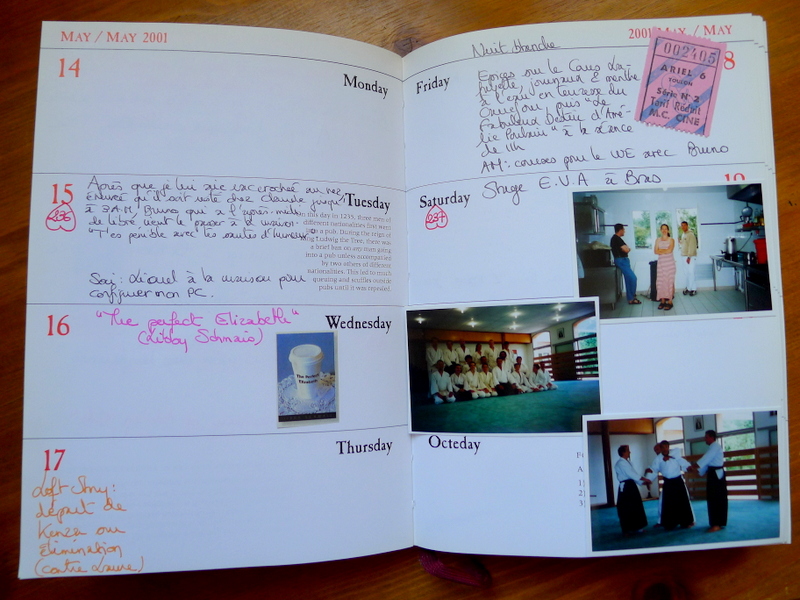 MAY / MAY 2001
14
Monday
15
236
Tuesday
Après que je lui aie
qu'il soit resté chez Claude jusqu'
à 3 A.M., Bruno qui a l'après-midi
de libre vient le passer à la maison
"T'es pénible avec tes sautes d'humeur"
on this day in 1235, three men of
different nationalities first went
into a pub. During the reign of
King Ludwig the Tree, there was
a brief ban on any men going
into a pub unless accompanied
by two others of different
nationalities. This led to much
queuing and scuffles outside
pubs until it was repealed.
Soir : Lionel à la maison pour
configurer mon PC.
16
Wednesday
"The perfect Elizabeth"
(Libby Schmais)
The Perfect
Elizabeth
17
Thursday
Loft Story :
départ de
Kenza ou
élimination
(contre Laure)
2001 MAY / MAY
Nuit blanche
8
Friday
sur le Cours La-
fayette, journaux & menthe
à l'eau en terrasse du
puis "Le
Fabuleux Destin d'Amé-
lie Poulain" à la séance
de 11h
AM : courses pour le WE avec Bruno
002405
ARIEL 6
TOULON
Série N° 2
Tarif Réduit
M.C. CINE
Saturday
237
Stage E.V.A à Bras
Octeday
A
1)
2)
3)